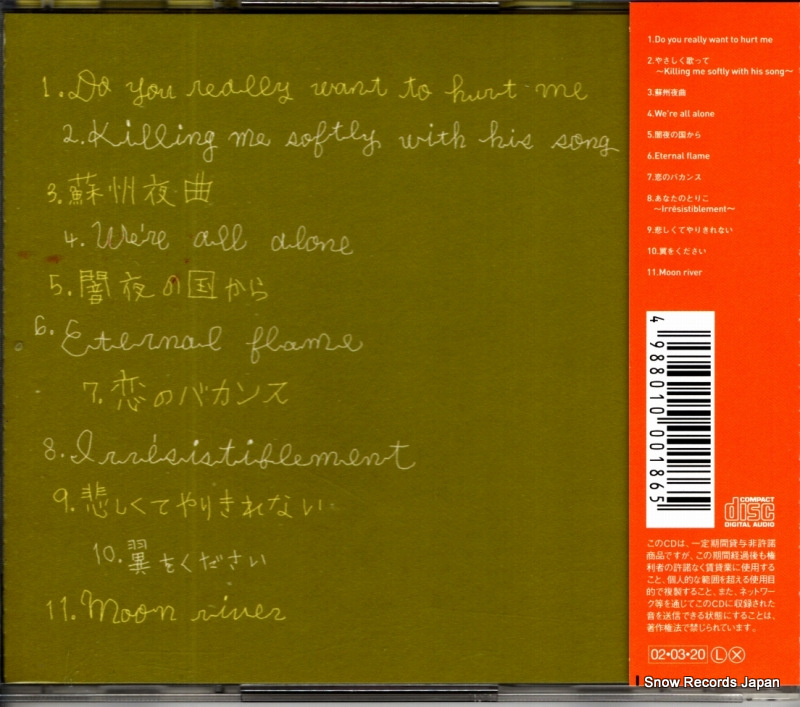 1.Do you really want to hurt me
2.Killing me softly with his song
3.蘇州夜曲
4.We're all alone
5.闇夜の国から
6.Eternal flame
7.恋のバカンス
8.Irrésistiblement
9.悲しくてやりきれない
10.翼をください
11.Moon river
1.Do you really want to hurt me
2.やさしく歌って
～Killing me softly with his song～
3.蘇州夜曲
4.We're all alone
5.闇夜の国から
6.Eternal flame
7.恋のバカンス
8.あなたのとりこ
～Irrésistiblement～
9.悲しくてやりきれない
10.翼をください
11.Moon river
4 988010 001865
COMPACT
disc
DIGITAL AUDIO
このCDは、一定期間貸与非許諾
商品ですが、この期間経過後も権
利者の許諾なく賃貸業に使用する
こと、個人的な範囲を超える使用目
的で複製すること、また、ネットワー
ク等を通じてこのCDに収録された
音を送信できる状態にすることは、
著作権法で禁じられています。
02•03•20 Ⓛ Ⓧ
Snow Records Japan